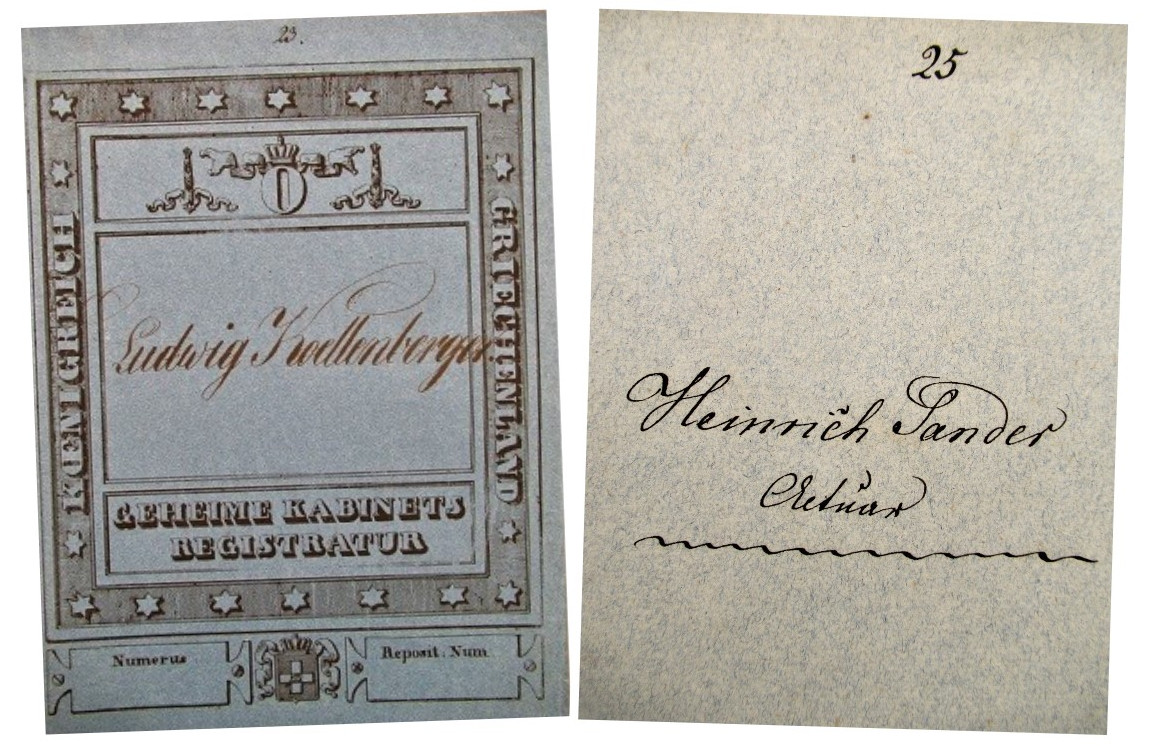 23.
O
KOENIGREICH
GRIECHENLAND
Ludwig Koellenberger
GEHEIME KABINETS
REGISTRATUR
Numerus
Reposit. Num.
25
Heinrich Sander
Actuar